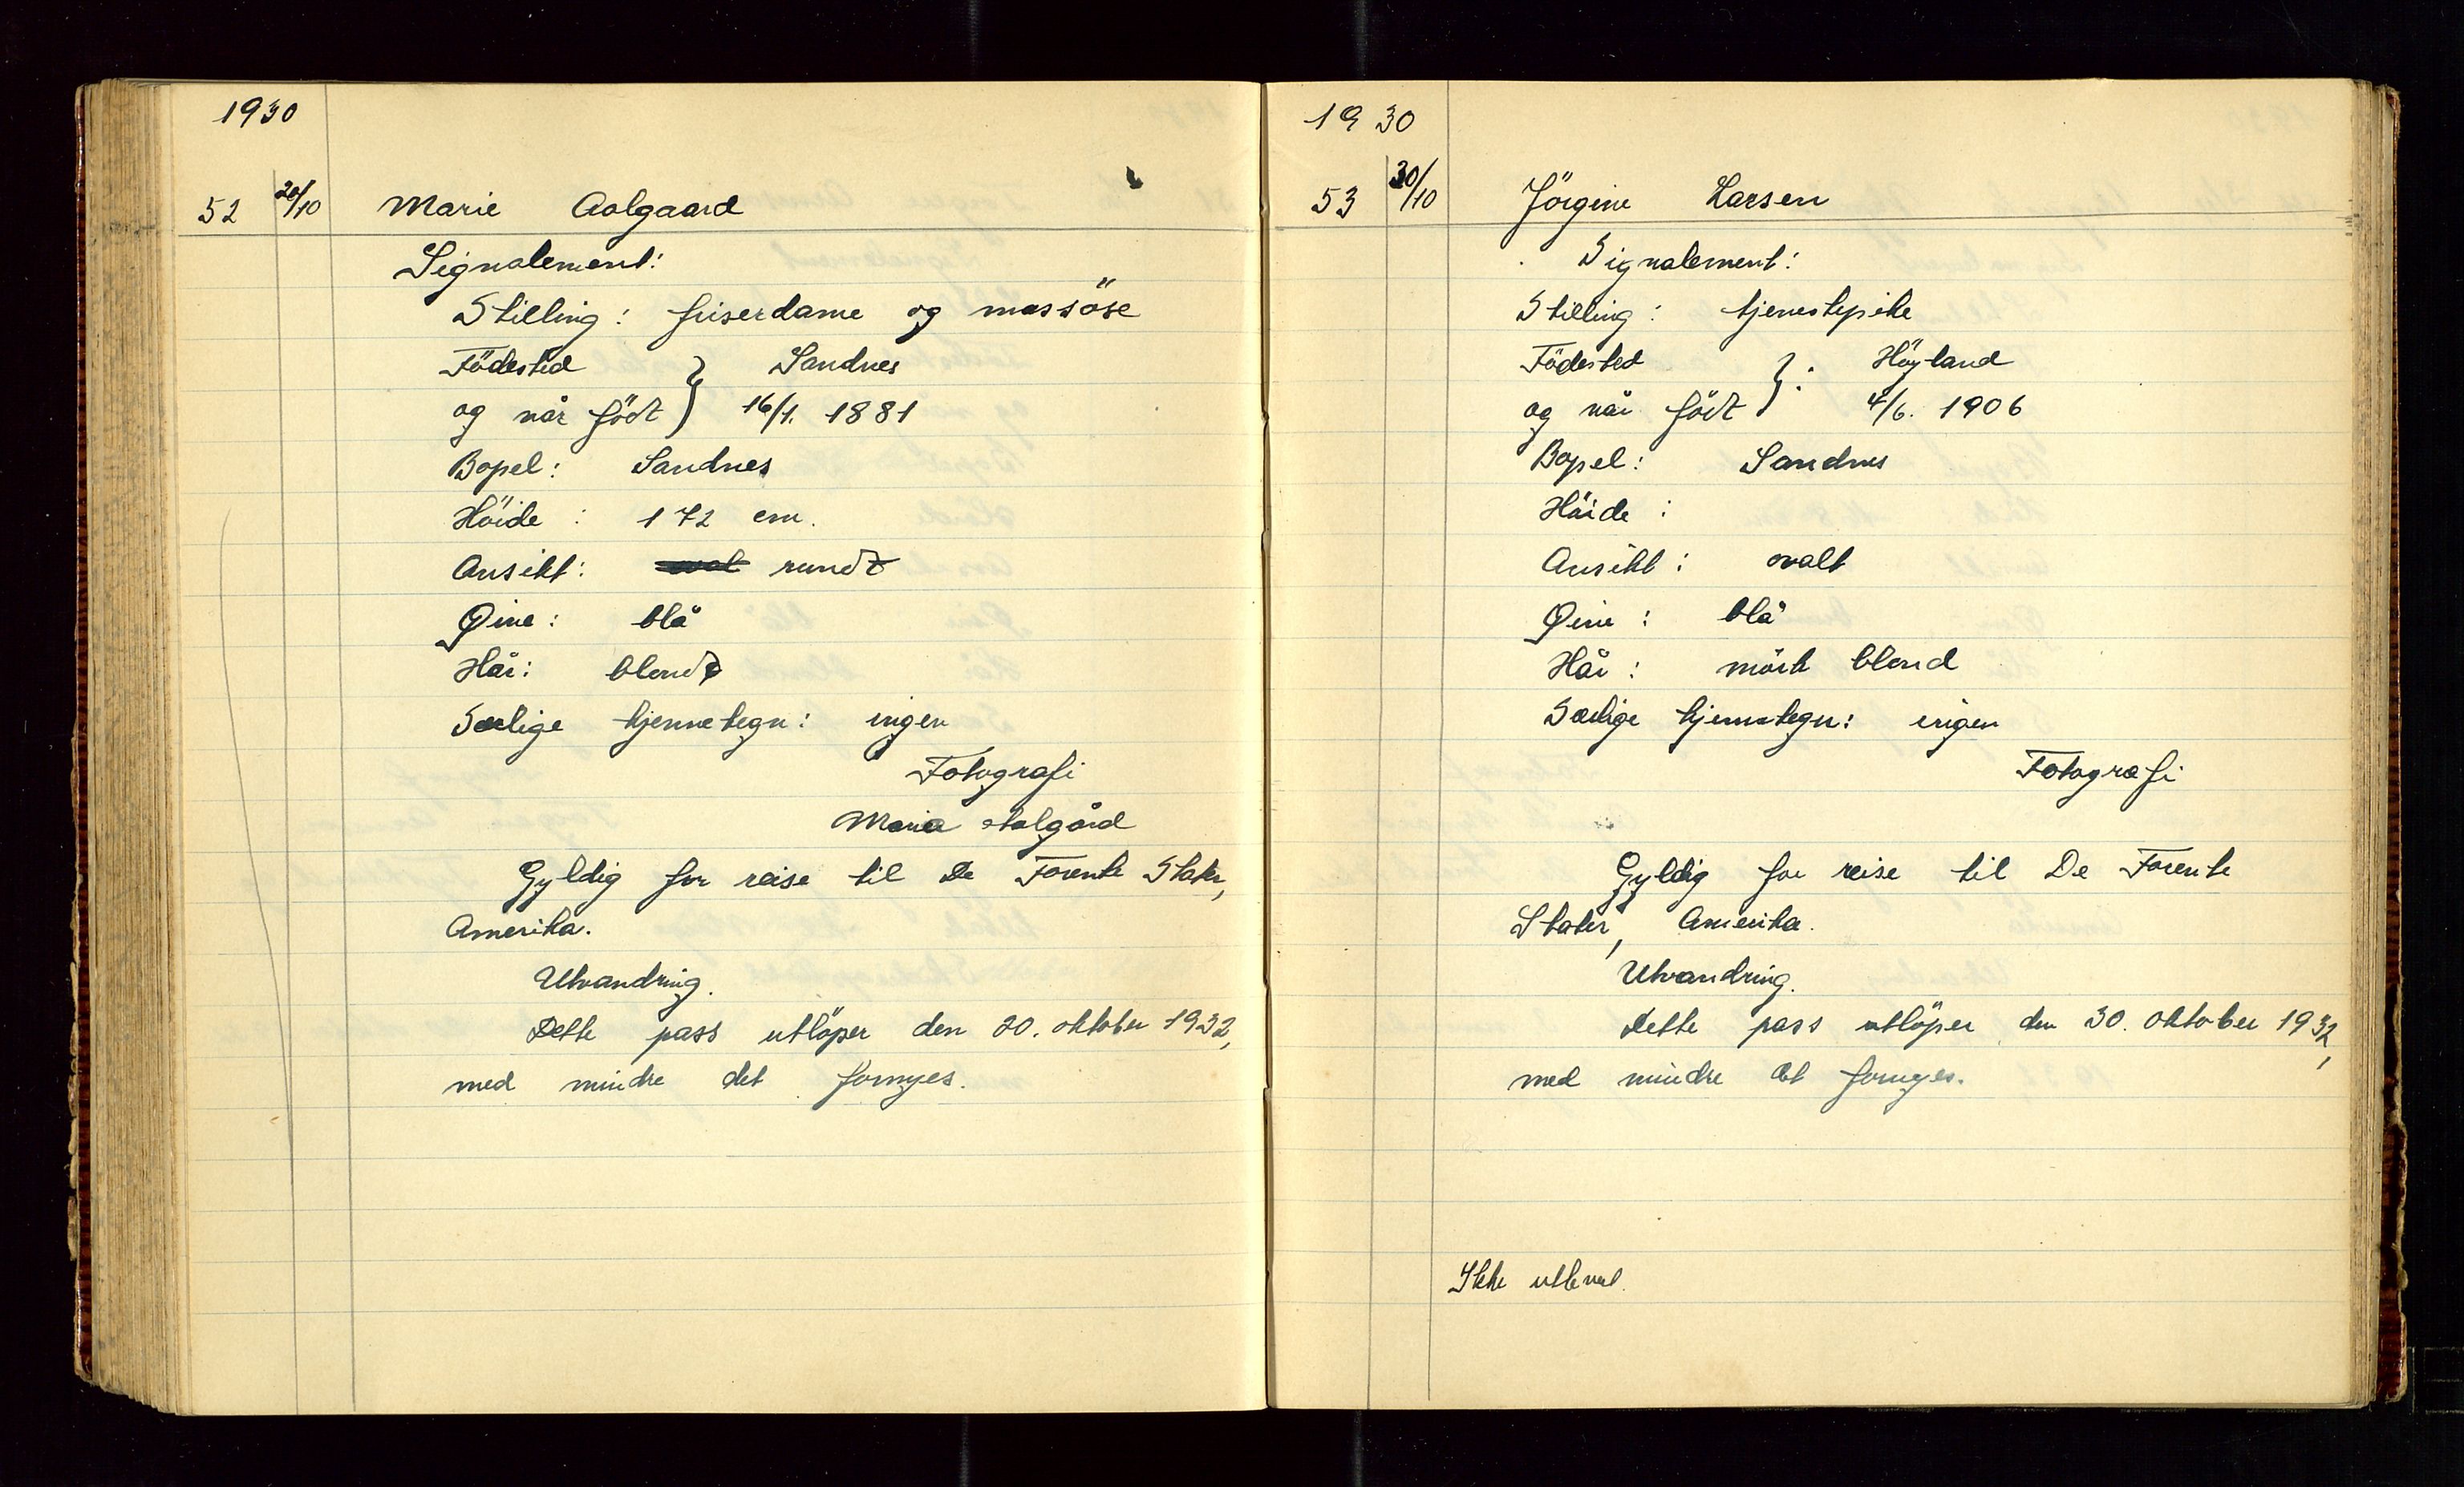 1930
52 20/10 Marie Aalgaard
Signalement:
Stilling: friserdame og massöse
Födested } Sandnes
og når födt } 16/1. 1881
Bopel: Sandnes
Höide: 172 cm.
Ansikt: oval rundt
Øine: blå
Hår: blond
Særlige kjennetegn: ingen
Fotografi
Maria Aalgård
Gyldig for reise til De Forente Stater,
Amerika.
Utvandring.
Dette pass utlöper den 20. oktober 1932,
med mindre det fornyes.
1930
53 30/10 Jörgine Larsen
Signalement:
Stilling: tjenestepike
Födested } : Höyland
og når födt } 4/6. 1906
Bopel: Sandnes
Höide:
Ansikt: ovalt
Øine: blå
Hår: mörk blond
Særlige kjennetegn: ingen
Fotografi
Gyldig for reise til De Forente
Stater, Amerika.
Utvandring.
Dette pass utlöper den 30. oktober 1932,
med mindre det fornyes.
Ikke utlevert.